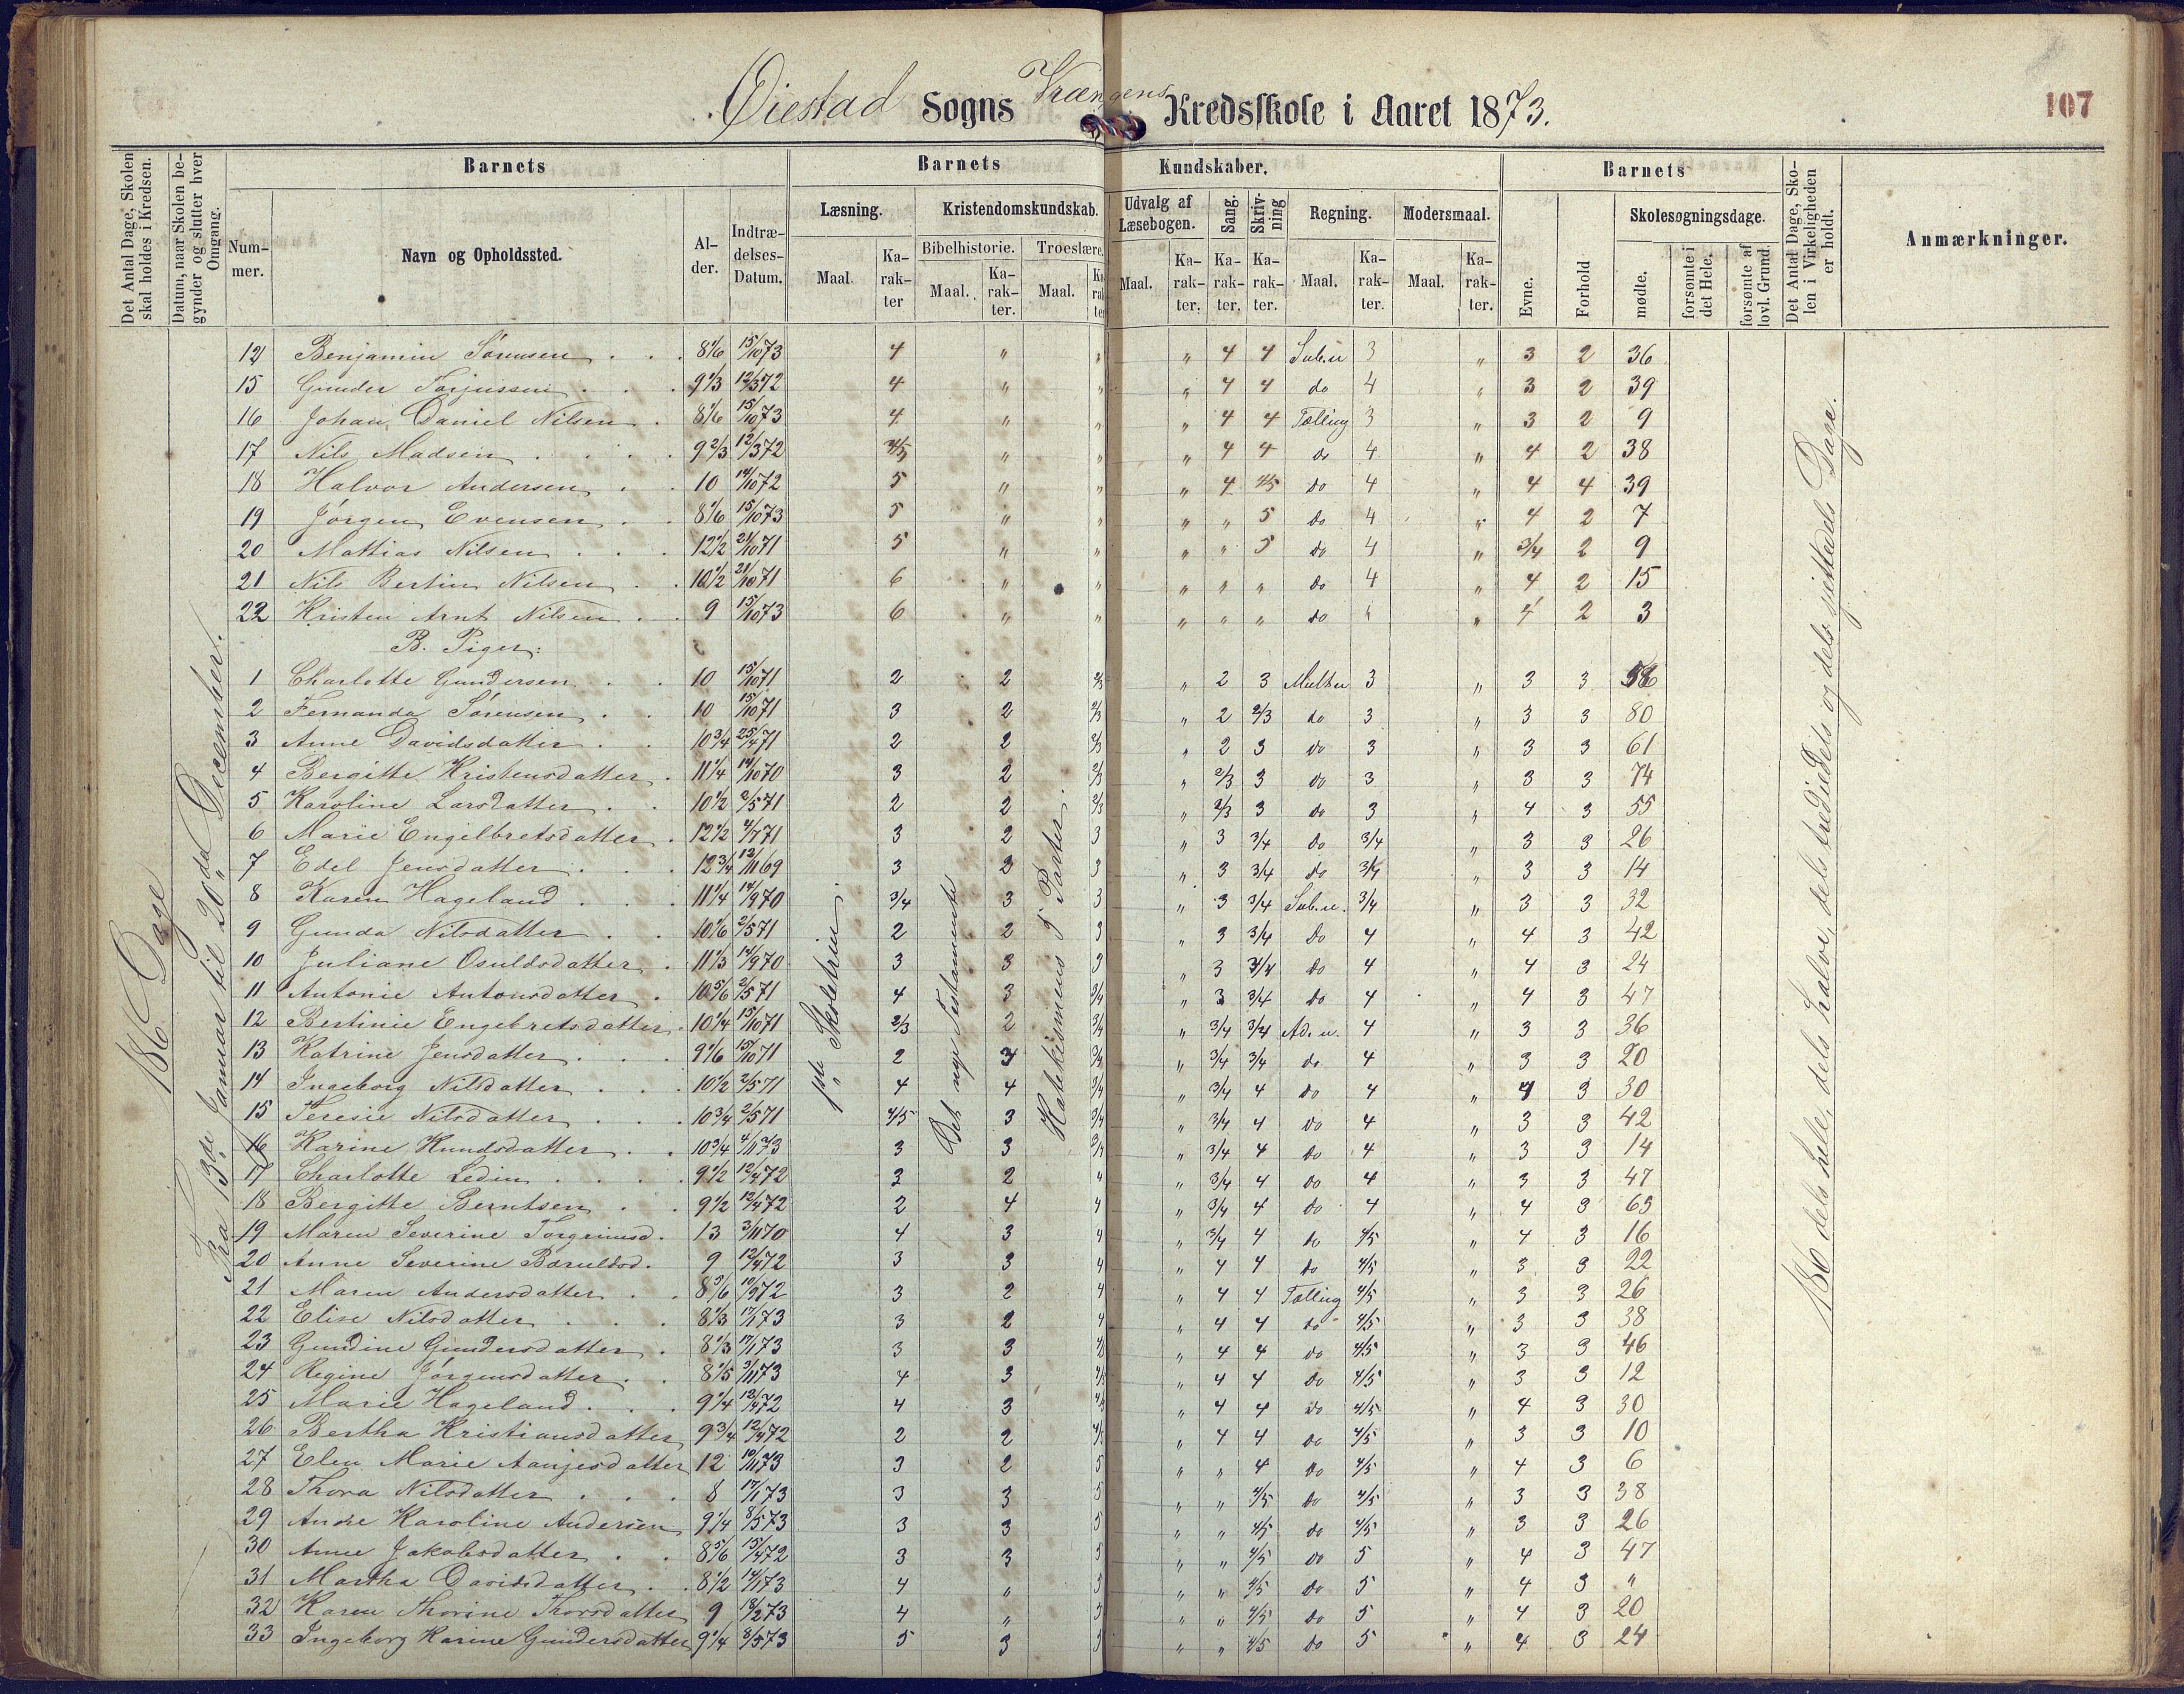 Øiestad Sogns Vrængens Kredsskole i Aaret 1873.
107
Det Antal Dage, Skolen skal holdes i Kredsen.
Datum, naar Skolen begynder og slutter hver Omgang.
Barnets
Nummer.
Navn og Opholdssted.
Alder.
Indtrædelses-Datum.
Barnets Kundskaber.
Læsning.
Maal.
Karakter
Kristendomskundskab.
Bibelhistorie.
Maal.
Karakter.
Troeslære.
Maal.
Karakter
Udvalg af Læsebogen.
Maal.
Karakter.
Sang.
Karakter.
Skrivning
Karakter.
Regning.
Maal.
Karakter.
Modersmaal.
Maal.
Karakter.
Barnets
Evne.
Forhold
Skolesøgningsdage.
mødte.
forsømte i det Hele.
forsømte af lovl. Grund.
Det Antal Dage, Skolen i Virkeligheden er holdt.
Anmærkninger.
186 Dage
Fra 13de Januar til 20de December.
1ste Skoletrin.
Det nye Testamente
Katekismens 5 Parter.
186 dels hele, dels halve, dels trediedels og dels sjettedels Dage.
Benjamin Sørensen 8 1/6 15/10 73 4 " " " 4 4 Sub.u 3 " 3 2 36
15 Gunder Torjussen 9 1/3 12/3 72 4 " " " 4 4 do 4 " 3 2 39
16 Johan Daniel Nilsen 8 1/6 15/10 73 4 " " " 4 4 Tælling 3 " 3 2 9
17 Nils Madsen 9 2/3 12/3 72 4/5 " " " 4 4 do 4 " 4 2 38
18 Halvor Andersen 10 14/10 72 5 " " " 4 4/5 do 4 " 4 4 39
19 Jørgen Evensen 8 1/6 15/10 73 5 " " " " 5 do 4 " 4 2 7
20 Mattias Nilsen 12 1/2 21/10 71 5 " " " " 5 do 4 " 3/4 2 9
21 Nils Bertin Nilsen 10 1/2 21/10 71 6 " " " " " do 4 " 4 2 15
22 Kristen Arnt Nilsen 9 15/10 73 6 " " " " " do " 4 2 3
B. Piger:
1 Charlotte Gundersen 10 15/10 71 2 2 2/3 " 2 3 Mult.u 3 " 3 3
2 Fernanda Sørensen 10 15/10 71 3 2 2/3 " 2 2/3 do 3 " 3 3 80
3 Anne Davidsdatter 10 3/4 25/4 71 2 2 2/3 " 2 3 do 3 " 3 3 61
4 Bergitte Kristensdatter 11 1/4 14/10 70 3 2 2/3 " 2/3 3 do 3 " 3 3 74
5 Karoline Larsdatter 10 1/2 2/5 71 2 2 2/3 " 2/3 3 do 3 " 4 3 55
6 Marie Engelbretsdatter 12 1/2 4/7 71 3 2 3 " 3 3/4 do 3/4 " 3 3 26
7 Edel Jensdatter 12 3/4 12/11 69 3 2 3 " 3 3/4 do 3/4 " 3 3 14
8 Karen Hageland 11 1/4 14/9 70 3/4 3 3 " 3 3/4 Sub.u. 3/4 " 3 3 32
9 Gunda Nilsdatter 10 1/6 2/5 71 2 2 3 " 3 3/4 do 4 " 4 3 42
10 Juliane Osuldsdatter 11 1/3 14/9 70 3 3 3 " 3 3/4 do 4 " 4 3 24
11 Antonie Antonsdatter 10 5/6 2/5 71 4 3 3/4 " 3 3/4 do 4 " 4 3 47
12 Bertinie Engebretsdatter 10 1/4 15/10 71 2/3 2 3/4 " 3/4 3/4 Ad.u. 4 " 3 3 36
13 Katrine Jensdatter 9 1/6 15/10 71 2 3 3/4 " 3/4 3/4 do 4 " 3 3 20
14 Ingeborg Nilsdatter 10 1/2 2/5 71 4 4 3/4 " 3/4 4 do 4 " 4 3 30
15 Teresie Nilsdatter 10 3/4 2/5 71 4/5 3 3/4 " 3/4 4 do 4 " 3 3 42
16 Karine Knudsdatter 10 3/4 4/11 73 3 3 3/4 " 3/4 4 do 4 " 3 3 14
17 Charlotte Ledin 9 1/2 12/4 72 3 2 4 " 3/4 4 do 4 " 3 3 47
18 Bergitte Berntsen 9 1/2 12/4 72 2 4 4 " 3/4 4 do 4 " 4 3 65
19 Maren Severine Torgrimsd. 13 3/11 70 4 3 4 " 3/4 4 do 4/5 " 4 3 16
20 Anne Severine Baruldsd. 9 12/4 72 3 3 4 " 4 4 do 4/5 " 3 3 22
21 Maren Andersdatter 8 5/6 10/9 72 3 2 4 " 4 4 Tælling 4/5 " 3 3 26
22 Elise Nilsdatter 8 1/3 17/1 73 3 2 4 " 4 4 do 4/5 " 3 3 38
23 Gundine Gundersdatter 8 1/3 17/1 73 3 3 " 4 4 do 4/5 " 3 3 46
24 Regine Jørgensdatter 8 1/5 3/11 73 4 3 4/5 " 4 4 do 4/5 " 3 3 12
25 Marie Hageland 9 1/4 12/4 72 4 3 4/5 " 4 4 do 4/5 " 4 3 30
26 Bertha Kristiansdatter 9 3/4 12/4 72 2 2 4/5 " 4 4 do 4/5 " 3 3 10
27 Elen Marie Aanjesdatter 12 10/11 73 3 2 5 " " 4 do 4/5 " 4 3 6
28 Thora Nilsdatter 8 17/1 73 3 3 5 " " 4/5 do 4/5 " 3 3 38
29 Andre Karoline Andersen 9 1/4 8/5 73 3 3 5 " " 4/5 do 4/5 " 3 3 26
30 Anne Jakobsdatter 8 5/6 15/4 72 3 3 5 " " 4/5 do 5 " 4 3 47
31 Martha Davidsdatter 8 1/2 14/1 73 4 " 5 " " 4/5 do 5 " 4 3 "
32 Karen Thorine Thorsdatter 9 18/2 73 4 " 5 " " 4/5 do 5 " 4 3 20
33 Ingeborg Karine Gundersdatter 9 1/4 8/5 73 5 3 5 " " 4/5 do 5 " 4 3 24